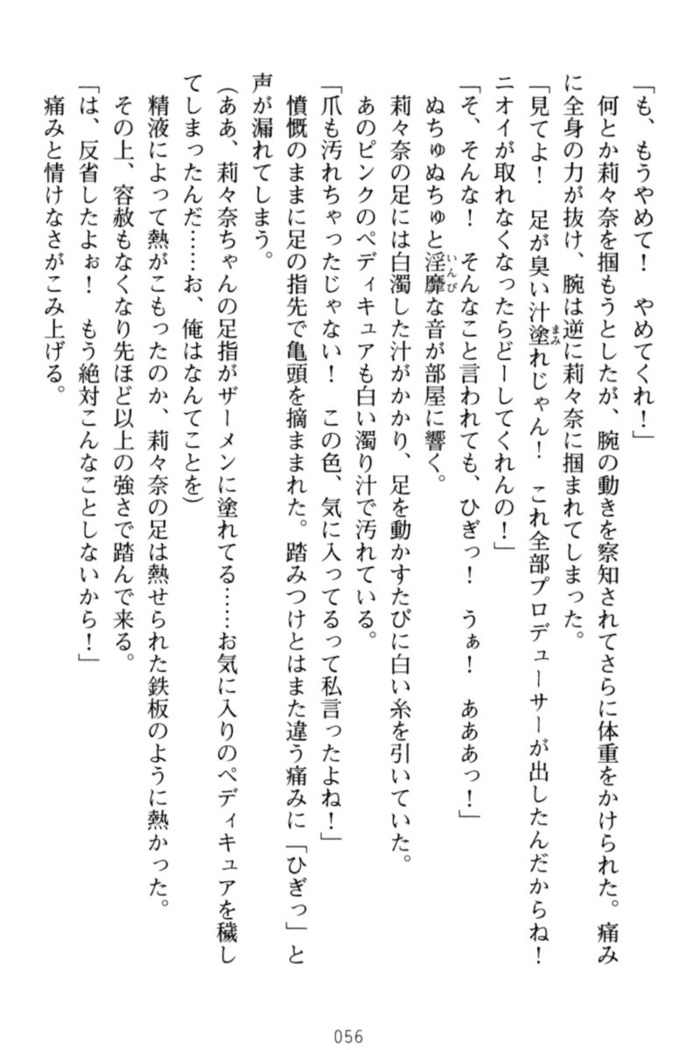 「も、もうやめて！　やめてくれ！」
何とか莉々奈を掴もうとしたが、腕の動きを察知されてさらに体重をかけられた。痛み
に全身の力が抜け、腕は逆に莉々奈に掴まれてしまった。
「見てよ！　足が臭い汁塗れじゃん！　これ全部プロデューサーが出したんだからね！
ニオイが取れなくなったらどーしてくれんの！」
「そ、そんな！　そんなこと言われても、ひぎっ！　うぁ！　あああっ！」
ぬちゅぬちゅと淫靡な音が部屋に響く。
莉々奈の足には白濁した汁がかかり、足を動かすたびに白い糸を引いていた。
あのピンクのペディキュアも白い濁り汁で汚れている。
「爪も汚れちゃったじゃない！　この色、気に入ってるって私言ったよね！」
憤慨のままに足の指先で亀頭を摘ままれた。踏みつけとはまた違う痛みに「ひぎっ」と
声が漏れてしまう。
（ああ、莉々奈ちゃんの足指がザーメンに塗れてる……お気に入りのペディキュアを穢し
てしまったんだ……お、俺はなんてことを）
精液によって熱がこもったのか、莉々奈の足は熱せられた鉄板のように熱かった。
その上、容赦もなくなり先ほど以上の強さで踏んで来る。
「は、反省したよぉ！　もう絶対こんなことしないから！」
痛みと情けなさがこみ上げる。
056